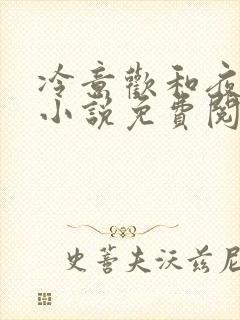 冷意歡和夜
小說免費閱
史蒂夫沃兹尼